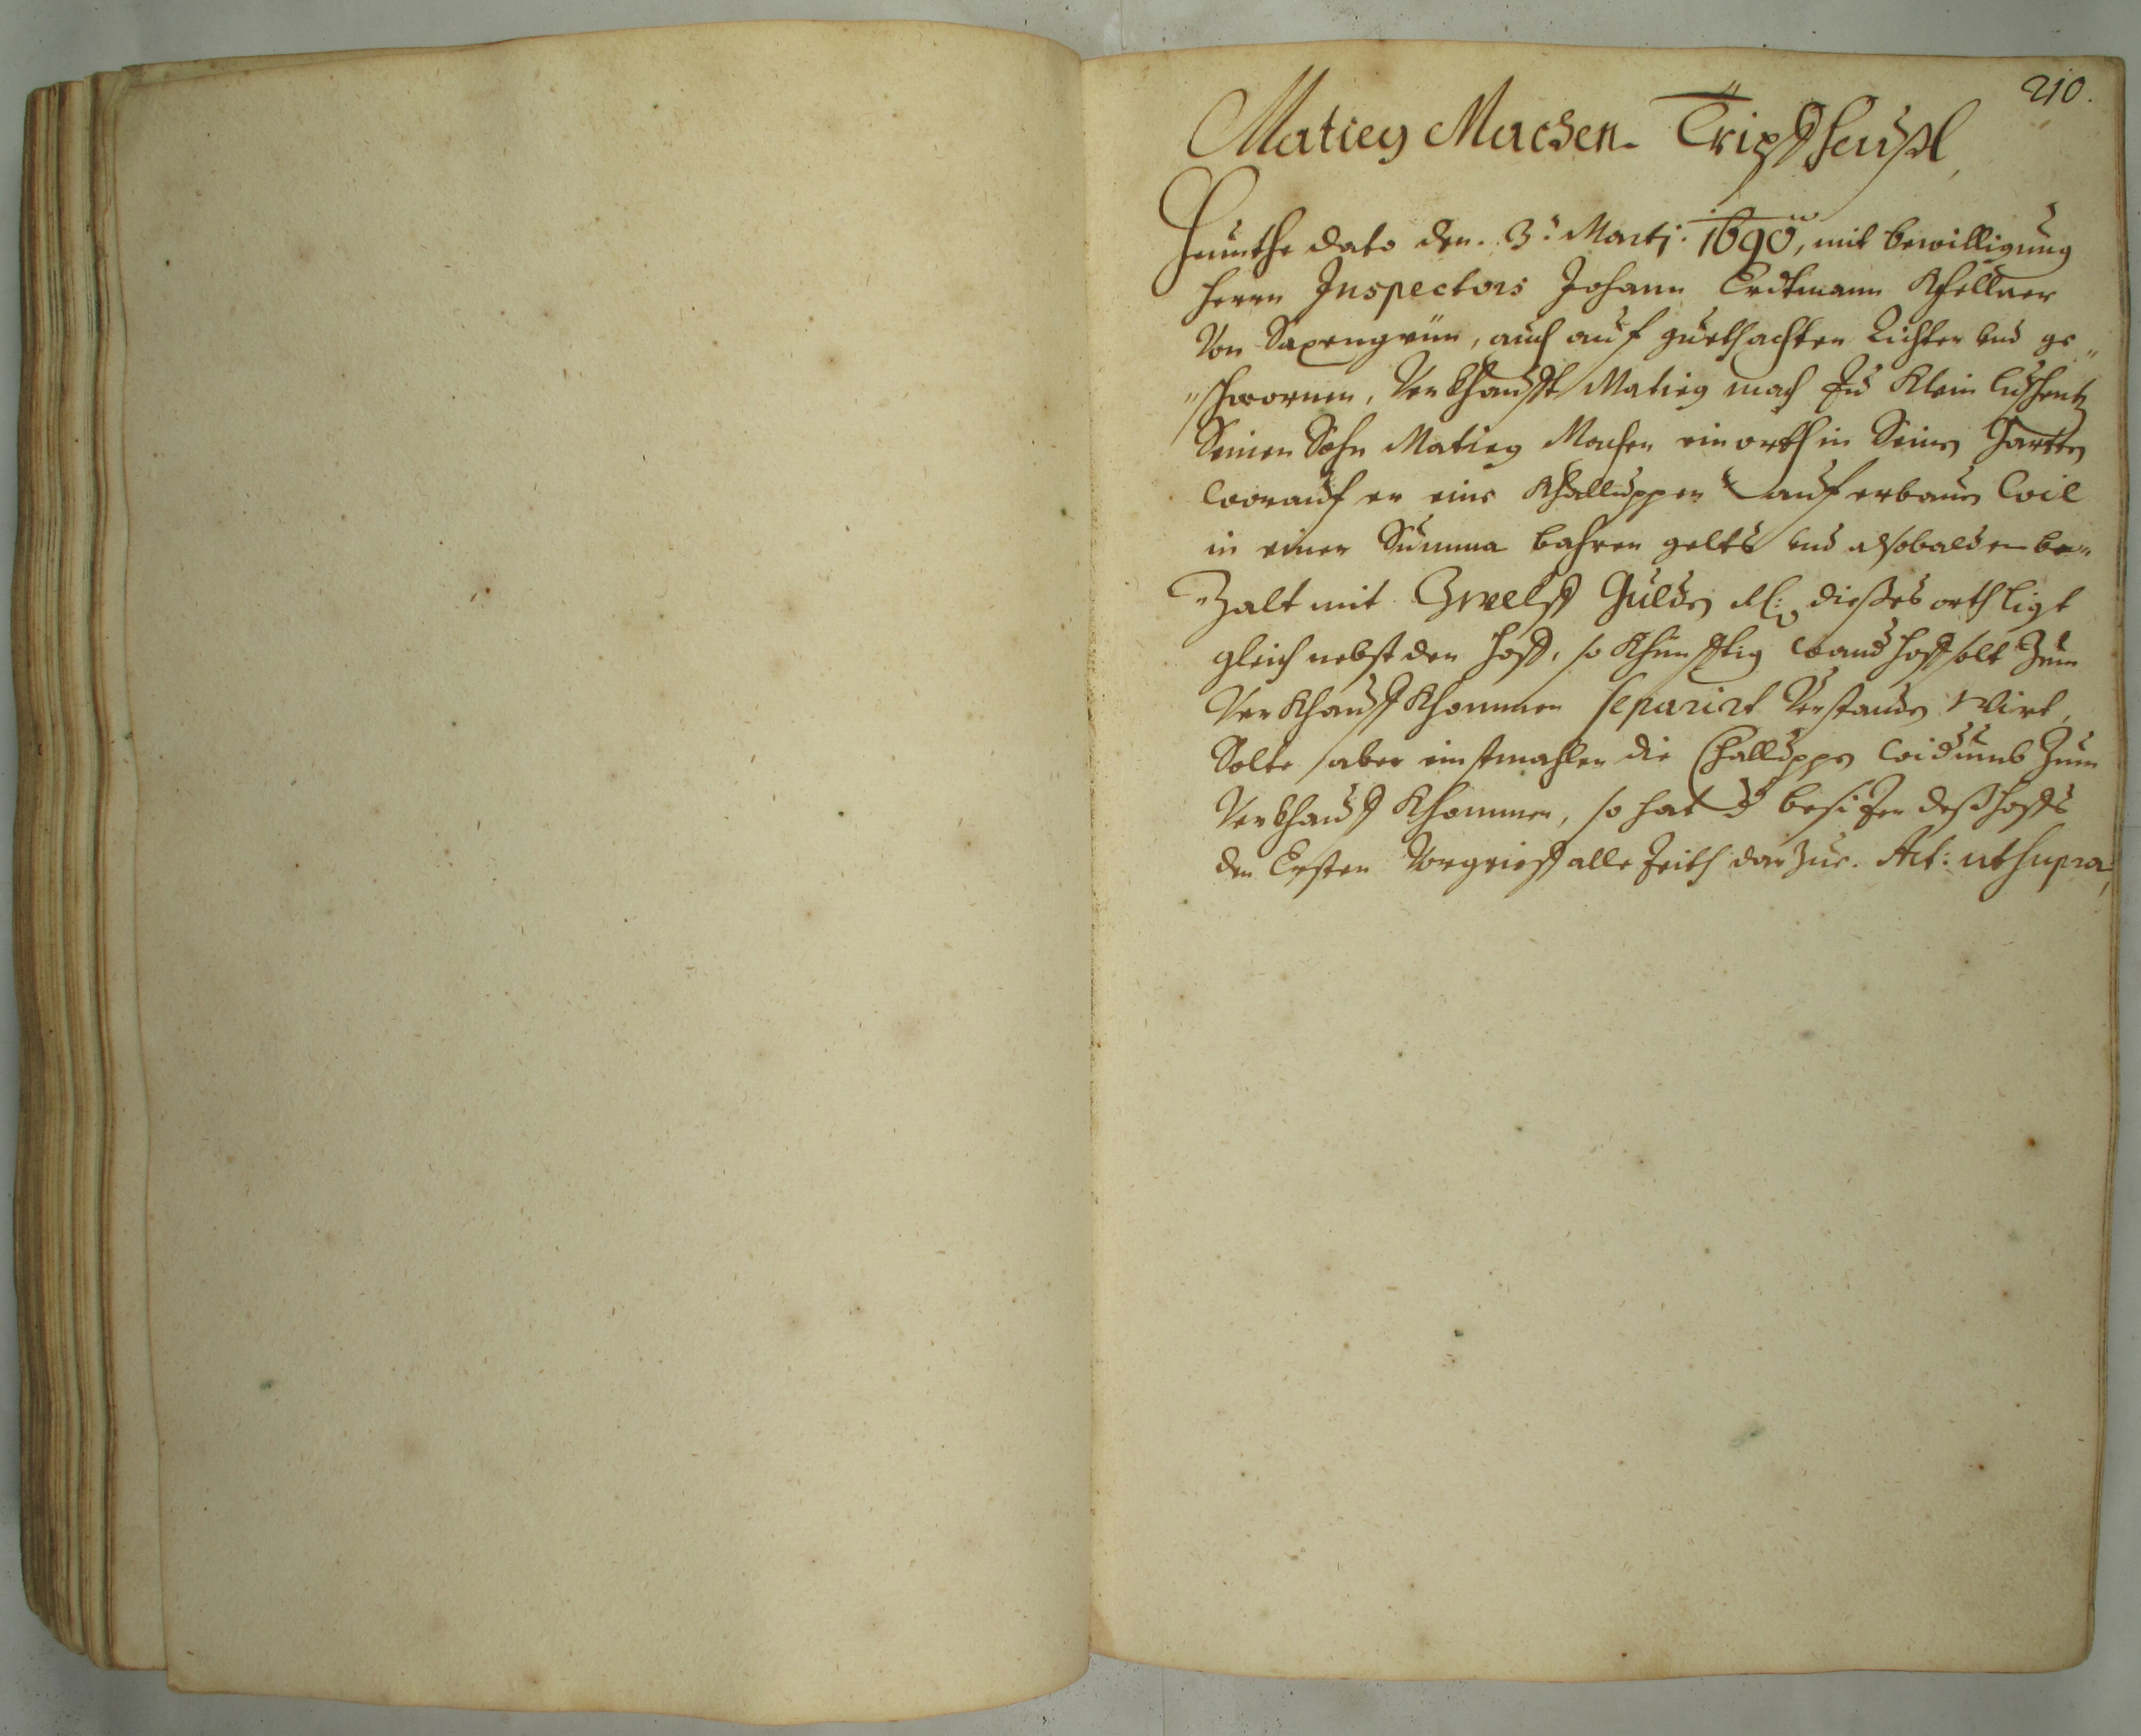 210.
Matieg Machen. Tripfheußl,
Heunthe dato den. 3: Martj. 1690, mit bewilligung
herrn Inspectors Johann Erdtmann Khellner
Von Saxengrün, auch auf guethachten Richter und ge„
„schwornen, Verkhaufft Matieg mach zu Klein
Seinen Sohn Matieg Machen ein orth in Seinen Gartten
worauf er eine Khalluppen auferbauen wil
in einer Summa bahren gelts und alsobalden be„
„Zalt mit Zwelff Gulden dießes orth ligt
gleich nebst den hoff, so Khünfftig wand hoff solt Zum
Verkhauff Khommen separirt Verstanden wirt,
Solte aber einstmahlen die Challuppen widumb Zum
Verkhauff Khommen, so hat d besitzer deß hoffs
den Ersten Vorgrieff alle Zeith darzue. Act: ut supra,